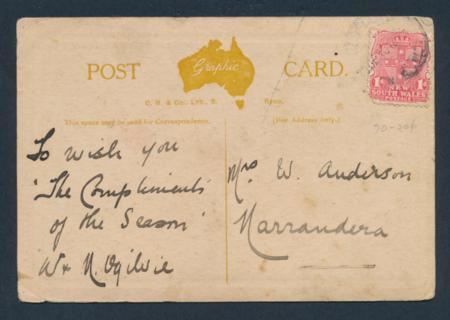 POST Graphic CARD.
C. B. & Co., Ltd., S.
This space may be used for Correspondence.
(For Address Only.)
1D NEW 1D
SOUTH WALES
POSTAGE
To wish you
"The Compliments
of the Season"
W & N. Ogilvie
Mrs W. Anderson
Narrandera